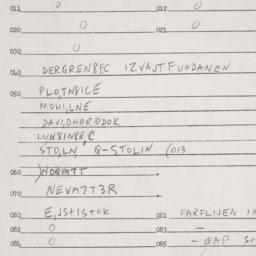 011 0 012 0
020 0 021 0
030 0
040 DERGRENBEC IZVAJTFUNDANEN
050 PLO,TNBICE
MOHI,LNE
DAVI,DHORODOK
LUNBINBEC
STO,LN, Q-STOLIN (013
060
070 NEVM7T3R
080 E,JSTISTOK 081 FARFLIJEN IN
082 0 083 -
084 0 085